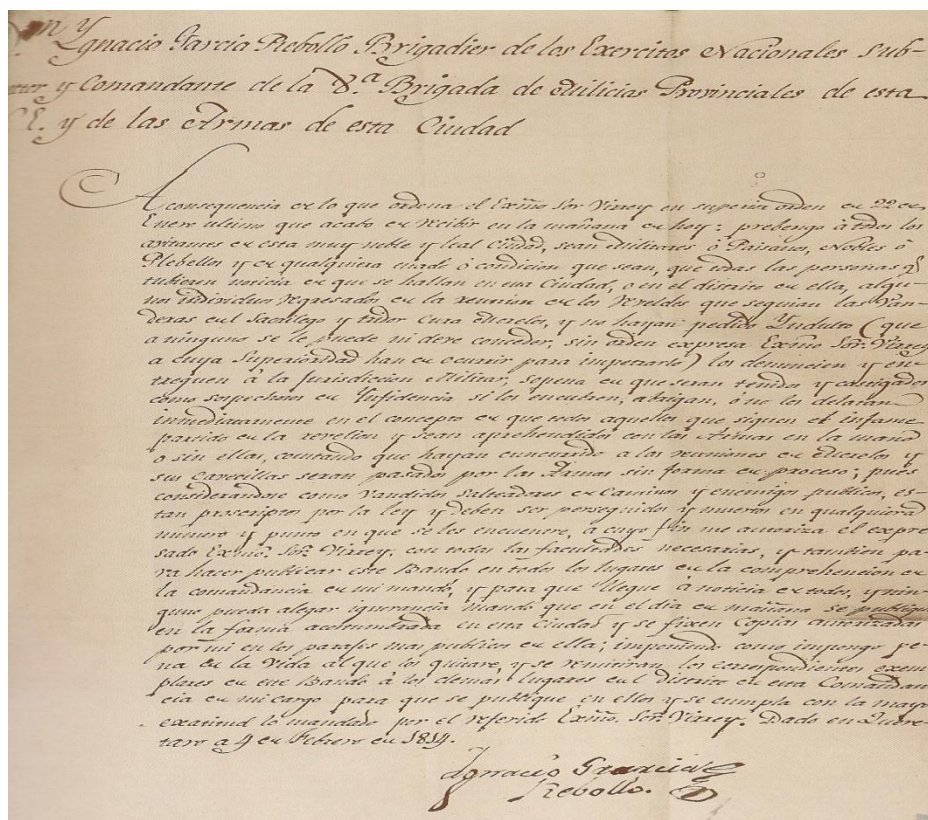 Ygnacio Garcia Rebollo Brigadier de los Exercitos Nacionales Sub-
y Comandante de la 8.ª Brigada de Milicias Provinciales de esta
E. y de las Armas de esta Ciudad
A consequencia de lo que ordena el Exmo Sor Virrey en superior orden de 22 de
Enero ultimo que acabo de recibir en la mañana de hoy: prebengo à todos los
avitantes de esta muy noble y leal Ciudad, sean Militares ô Paisanos, Nobles ô
Plebellos y de qualquiera estado ô condicion que sean, que todas las personas q.
tubieren noticia de que se hallan en esta Ciudad, o en el distrito de ella, algu-
nos individuos regresados de la reunion de los reveldes que seguian las Van-
deras del Sacrilego y traidor Cura Morelos, y no hayan pedido Yndulto (que
a ninguno se le puede ni deve conceder, sin orden expresa Exmo Sor. Virrey
a Cuya Superioridad han de ocurrir para impetrarlo) los denuncien y en-
treguen à la Jurisdiccion Militar, sopena de que seran tenidos y castigados
como sospechosos de Ynfidencia si los encubren, abrigan, ô no los delatan
inmediatamente en el concepto de que todos aquellos que siguen el infame
partido de la revelion y sean aprehendidos con las Armas en la mano
o sin ellas, constando que hayan concurrido a las reuniones de Morelos y
sus Cavecillas seran pasados por las Armas sin forma de proceso; pues
considerandose como Vandidos Salteadores de Caminos y enemigos publicos, es-
tan proscriptos por la ley y deben ser perseguidos y muertos en qualquiera
numero y punto en que se les encuentre, a cuyo fin me autoriza el expre-
sado Exmo. Sor. Virrey, con todas las facultades necesarias, y tambien pa-
ra hacer publicar este Bando en todos los lugares de la comprehencion de
la comandancia de mi mando, y para que llegue à noticia de todos, y nin-
guno pueda alegar ignorancia mando que en el dia de mañana se publique
en la forma acostumbrada en esta Ciudad y se fixen Copias autorizadas
por mi en los parajes mas publicos de ella; imponiendo como impongo pe-
na de la Vida al que los quitare, y se remitiran los correspondientes exem-
plares de este Bando à los demas lugares del distrito de esta Comandan
cia de mi cargo para que se publique en ellos y se cumpla con la mayor
exatitud lo mandado por el referido Exmo. Sor. Virrey. Dado en Quere-
taro a 4 de Febrero de 1814.
Ygnacio Garcia
Rebollo.